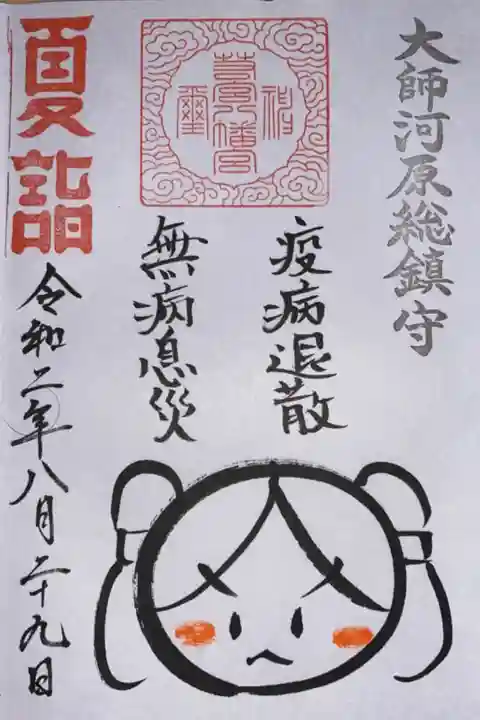 大師河原総鎮守
疫病退散
無病息災
若宮八幡宮
夏詣
令和二年八月二十九日